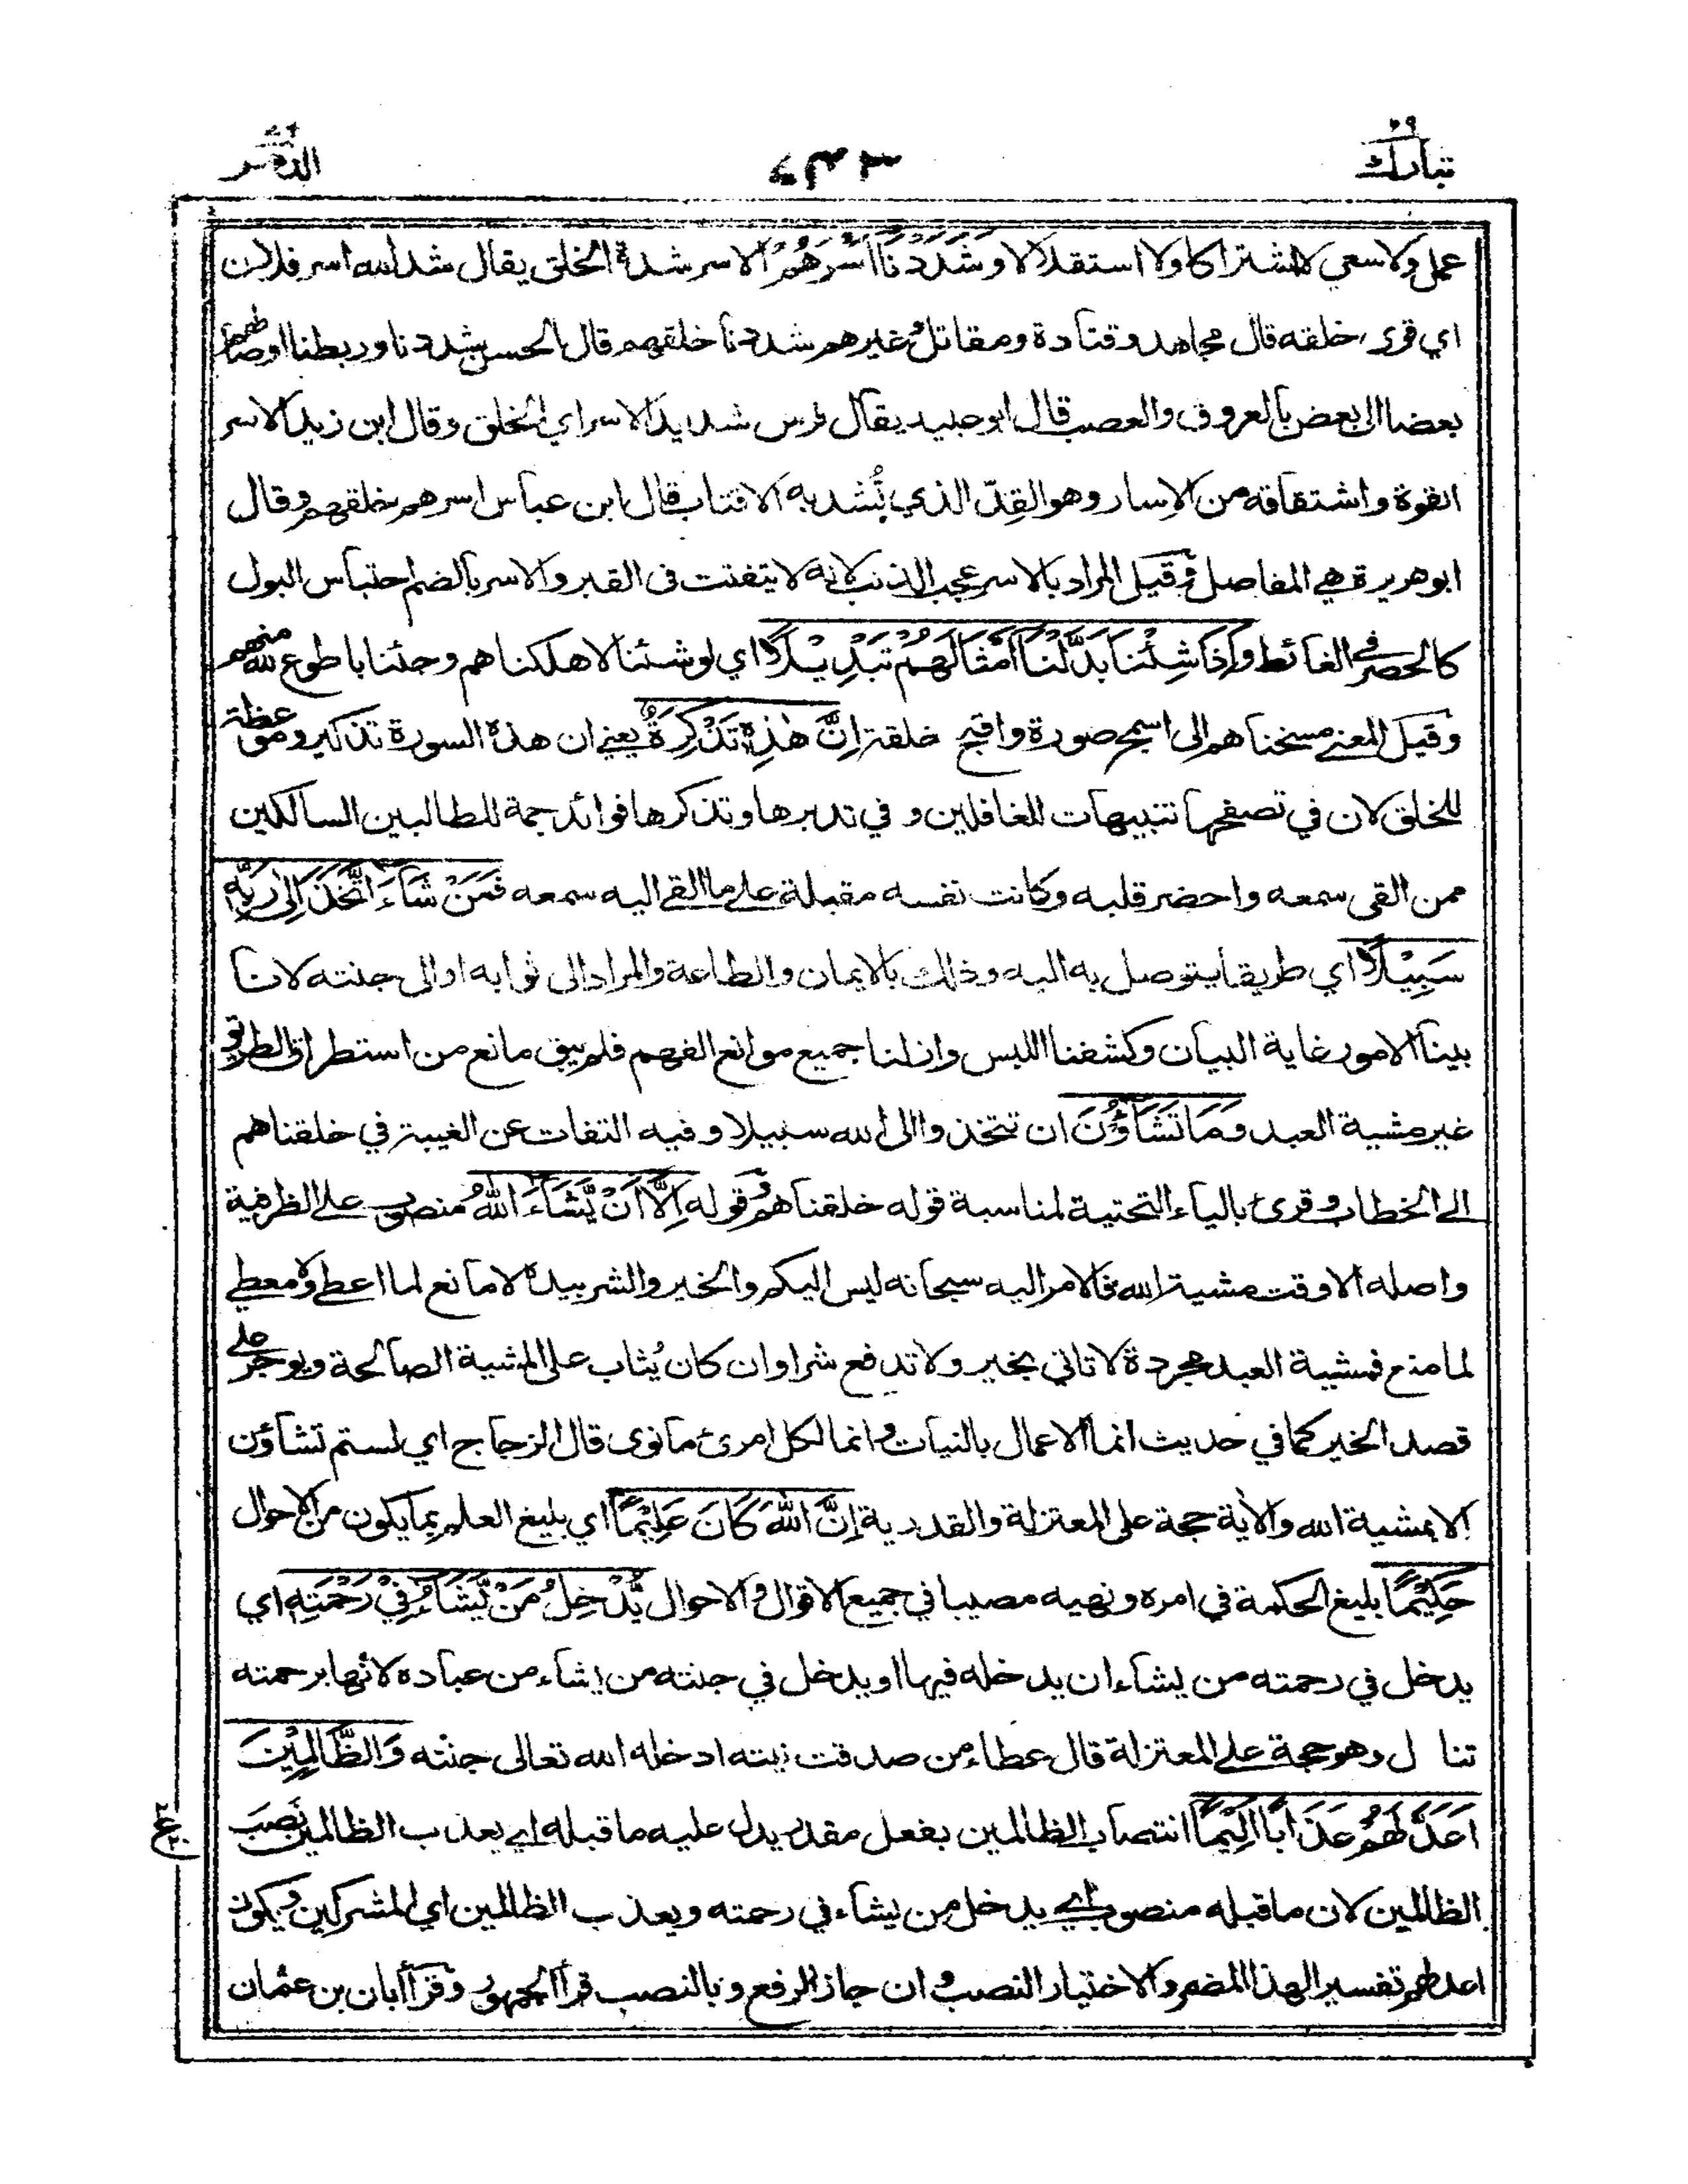 تبارك ٢٩
الدهر ٧٦
عمل ولا سعي لا اشتراكا ولا استقلالا وَشَدَدْنَا أَسْرَهُمْ الاسر شدة الخلق يقال شد الله اسر فلان
اي قوى خلقه قال مجاهد وقتادة ومقاتل وغيرهم شددنا خلقهم قال الحسن شددنا وربطنا اوصالهم
بعضا الى بعض بالعروق والعصب قال ابو عبيد يقال فرس شديد الاسر اي الخلق وقال ابن زيد الاسر
القوة واشتقاقه من الاِسار وهو القِدّ الذي تُشد به الاقتاب قال ابن عباس اسرهم خلقهم وقال
ابو هريرة هي المفاصل وقيل المراد بالاسر عجب الذنب لانه لا يتفتت في القبر والاسر بالضم احتباس البول
كالحصر في الغائط وَإِذَا شِئْنَا بَدَّلْنَا أَمْثَالَهُمْ تَبْدِيْلًا اي لو شئنا لاهلكناهم وجئنا باطوع لله منهم
وقيل المعنى مسخناهم الى اسمج صورة واقبح خلقة اِنَّ هٰذِهٖ تَذْكِرَةٌ يعني ان هذه السورة تذكير وموعظة
للخلق لان في تصفحها تنبيهات للغافلين وفي تدبرها وتذكرها فوائد جمة للطالبين السالكين
ممن القى سمعه واحضر قلبه وكانت نفسه مقبلة على ما القى اليه سمعه فَمَنْ شَآءَ اتَّخَذَ اِلٰى رَبِّهٖ
سَبِيْلًا اي طريقا يتوصل به اليه وذلك بالايمان والطاعة والمراد الى ثوابه او الى جنته لانا
بينا الامور غاية البيان وكشفنا اللبس وازلنا جميع موانع الفهم فلم يبق مانع من استطراق الطريق
غير مشية العبد وَمَا تَشَآؤُنَ ان تتخذوا الى الله سبيلا وفيه التفات عن الغيبة في خلقناهم
الى الخطاب وقرئ بالياء التحتية لمناسبة قوله خلقناهم وقوله اِلَّا اَنْ يَّشَآءَ اللهُ منصوب على الظرفية
واصله الا وقت مشية الله فالامر اليه سبحانه ليس اليكم والخير والشر بيده لا مانع لما اعطى ولا معطي
لما منع فمشية العبد مجردة لا تاتي بخير ولا تدفع شرا وان كان يُثاب على المشية الصالحة ويوجر على
قصد الخير كما في حديث انما الاعمال بالنيات وانما لكل امرئ ما نوى قال الزجاج اي لستم تشاؤن
الا بمشية الله والاية حجة على المعتزلة والقدرية اِنَّ اللهَ كَانَ عَلِيْمًا اي بليغ العلم بما يكون من الاحوال
حَكِيْمًا بليغ الحكمة في امره ونهيه مصيبا في جميع الاقوال والاحوال يُّدْخِلُ مَنْ يَّشَآءُ فِيْ رَحْمَتِهٖ اي
يدخل في رحمته من يشاء ان يدخله فيها او يدخل في جنته من يشاء من عباده لانها برحمته
تنال وهو حجة على المعتزلة قال عطاء من صدقت نيته ادخله الله تعالى جنته وَالظَّالِمِيْنَ
اَعَدَّ لَهُمْ عَذَابًا اَلِيْمًا انتصاب الظالمين بفعل مقدر يدل عليه ما قبله اي يعذب الظالمين نصب
الظالمين لان ما قبله منصوب اي يدخل من يشاء في رحمته ويعذب الظالمين اي المشركين ويكون
اعد لهم تفسير الهذا المضمر والاختيار النصب وان جاز الرفع وبالنصب قرأ الجمهور وقرأ أبان بن عثمان